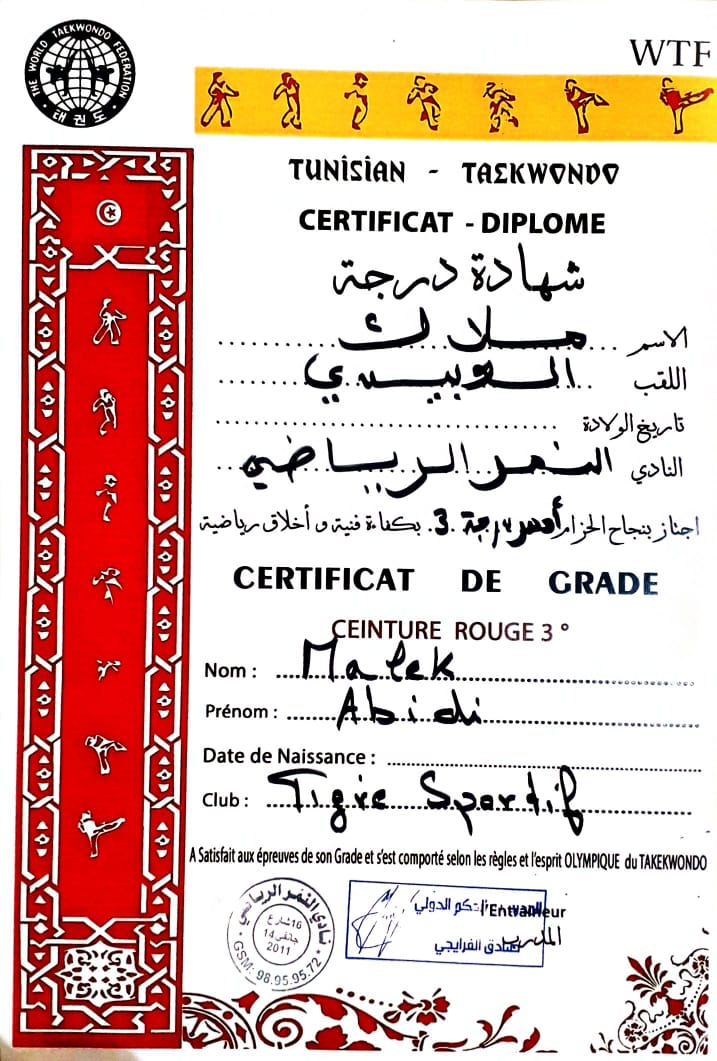 THE WORLD TAEKWONDO FEDERATION
태권도
WTF
TUNISIAN - TAEKWONDO
CERTIFICAT - DIPLOME
شهادة درجة
الاسم ملاك
اللقب
تاريخ الولادة
النادي النمر الرياضي
اجتاز بنجاح الحزام أحمر درجة 3. بكفاءة فنية و أخلاق رياضية
CERTIFICAT DE GRADE
CEINTURE ROUGE 3°
Nom : Malek
Prénom : Abidi
Date de Naissance :
Club : Tigre Spordif
A Satisfait aux épreuves de son Grade et s'est comporté selon les règles et l'esprit OLYMPIQUE du TAKEKWONDO
نادي النمر الرياضي
16 شارع
14 جانفي
2011
GSM: 98.95.95.72
الحكم الدولي
l'Entraîneur
المدرب
الصادق الفرايجي